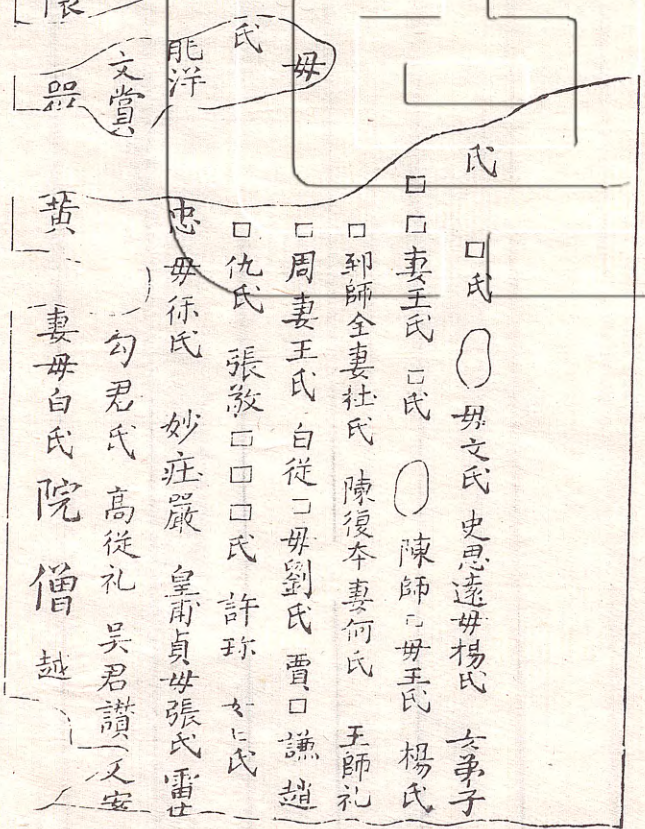 氏　□氏　毋文氏　史思遠毋楊氏　女弟子
□□妻王氏　□氏　陳師□毋王氏　楊氏
□郅師全妻杜氏　陳復本妻何氏　王師礼
□周妻王氏　白從□毋劉氏　賈□謙　趙
□仇氏　張敬□□□氏　許珎　氏
忠毋徐氏　妙疰嚴　皇甫貞毋張氏　雷
勾君氏　高從礼　吴君讃　文安
黄　妻毋白氏　院僧　越
毋
氏
洋
文賞